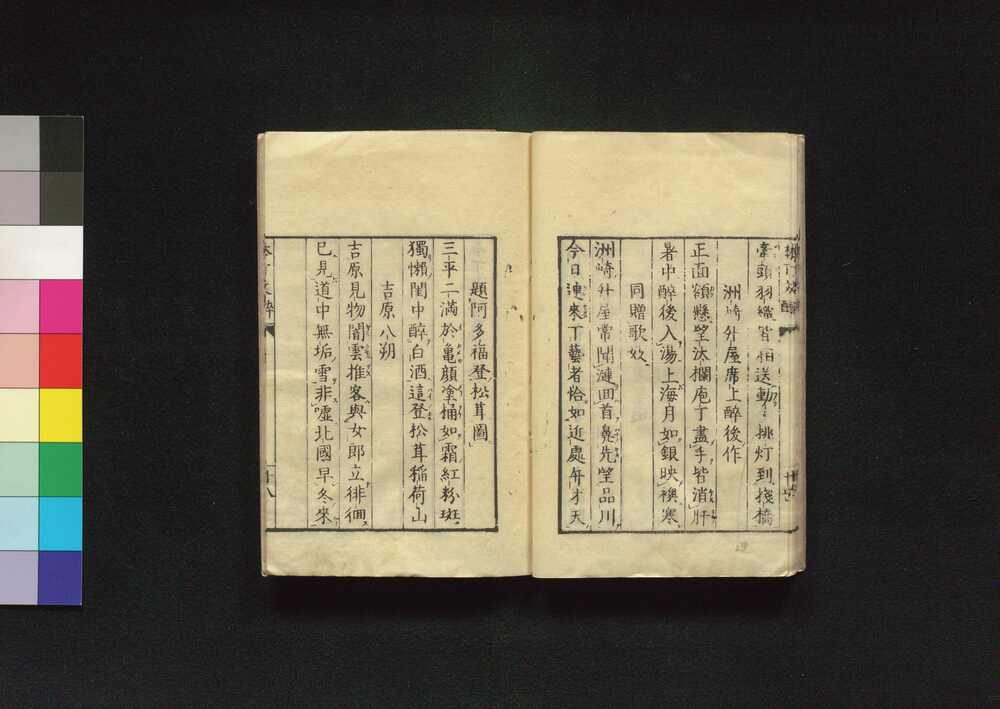 牽頭羽織皆相送動𛀁挑灯到棧橋
洲崎升屋席上醉後作
正面額懸望汰欄庖丁盡手皆消肝
暑中醉後入湯上海月如銀映襖寒
同贈歌妓
洲崎升屋常聞漣回首鼻先望品川
今日連來丁藝者恰如近處弁才天
題阿多福登松茸圖
三平二満於亀顔塗桶如霜紅粉斑
獨懶閨中醉白酒這登松茸稲荷山
吉原八朔
吉原見物闇雲推客與女郎立徘徊
已見道中無垢雪非嘘北國早冬來
十八